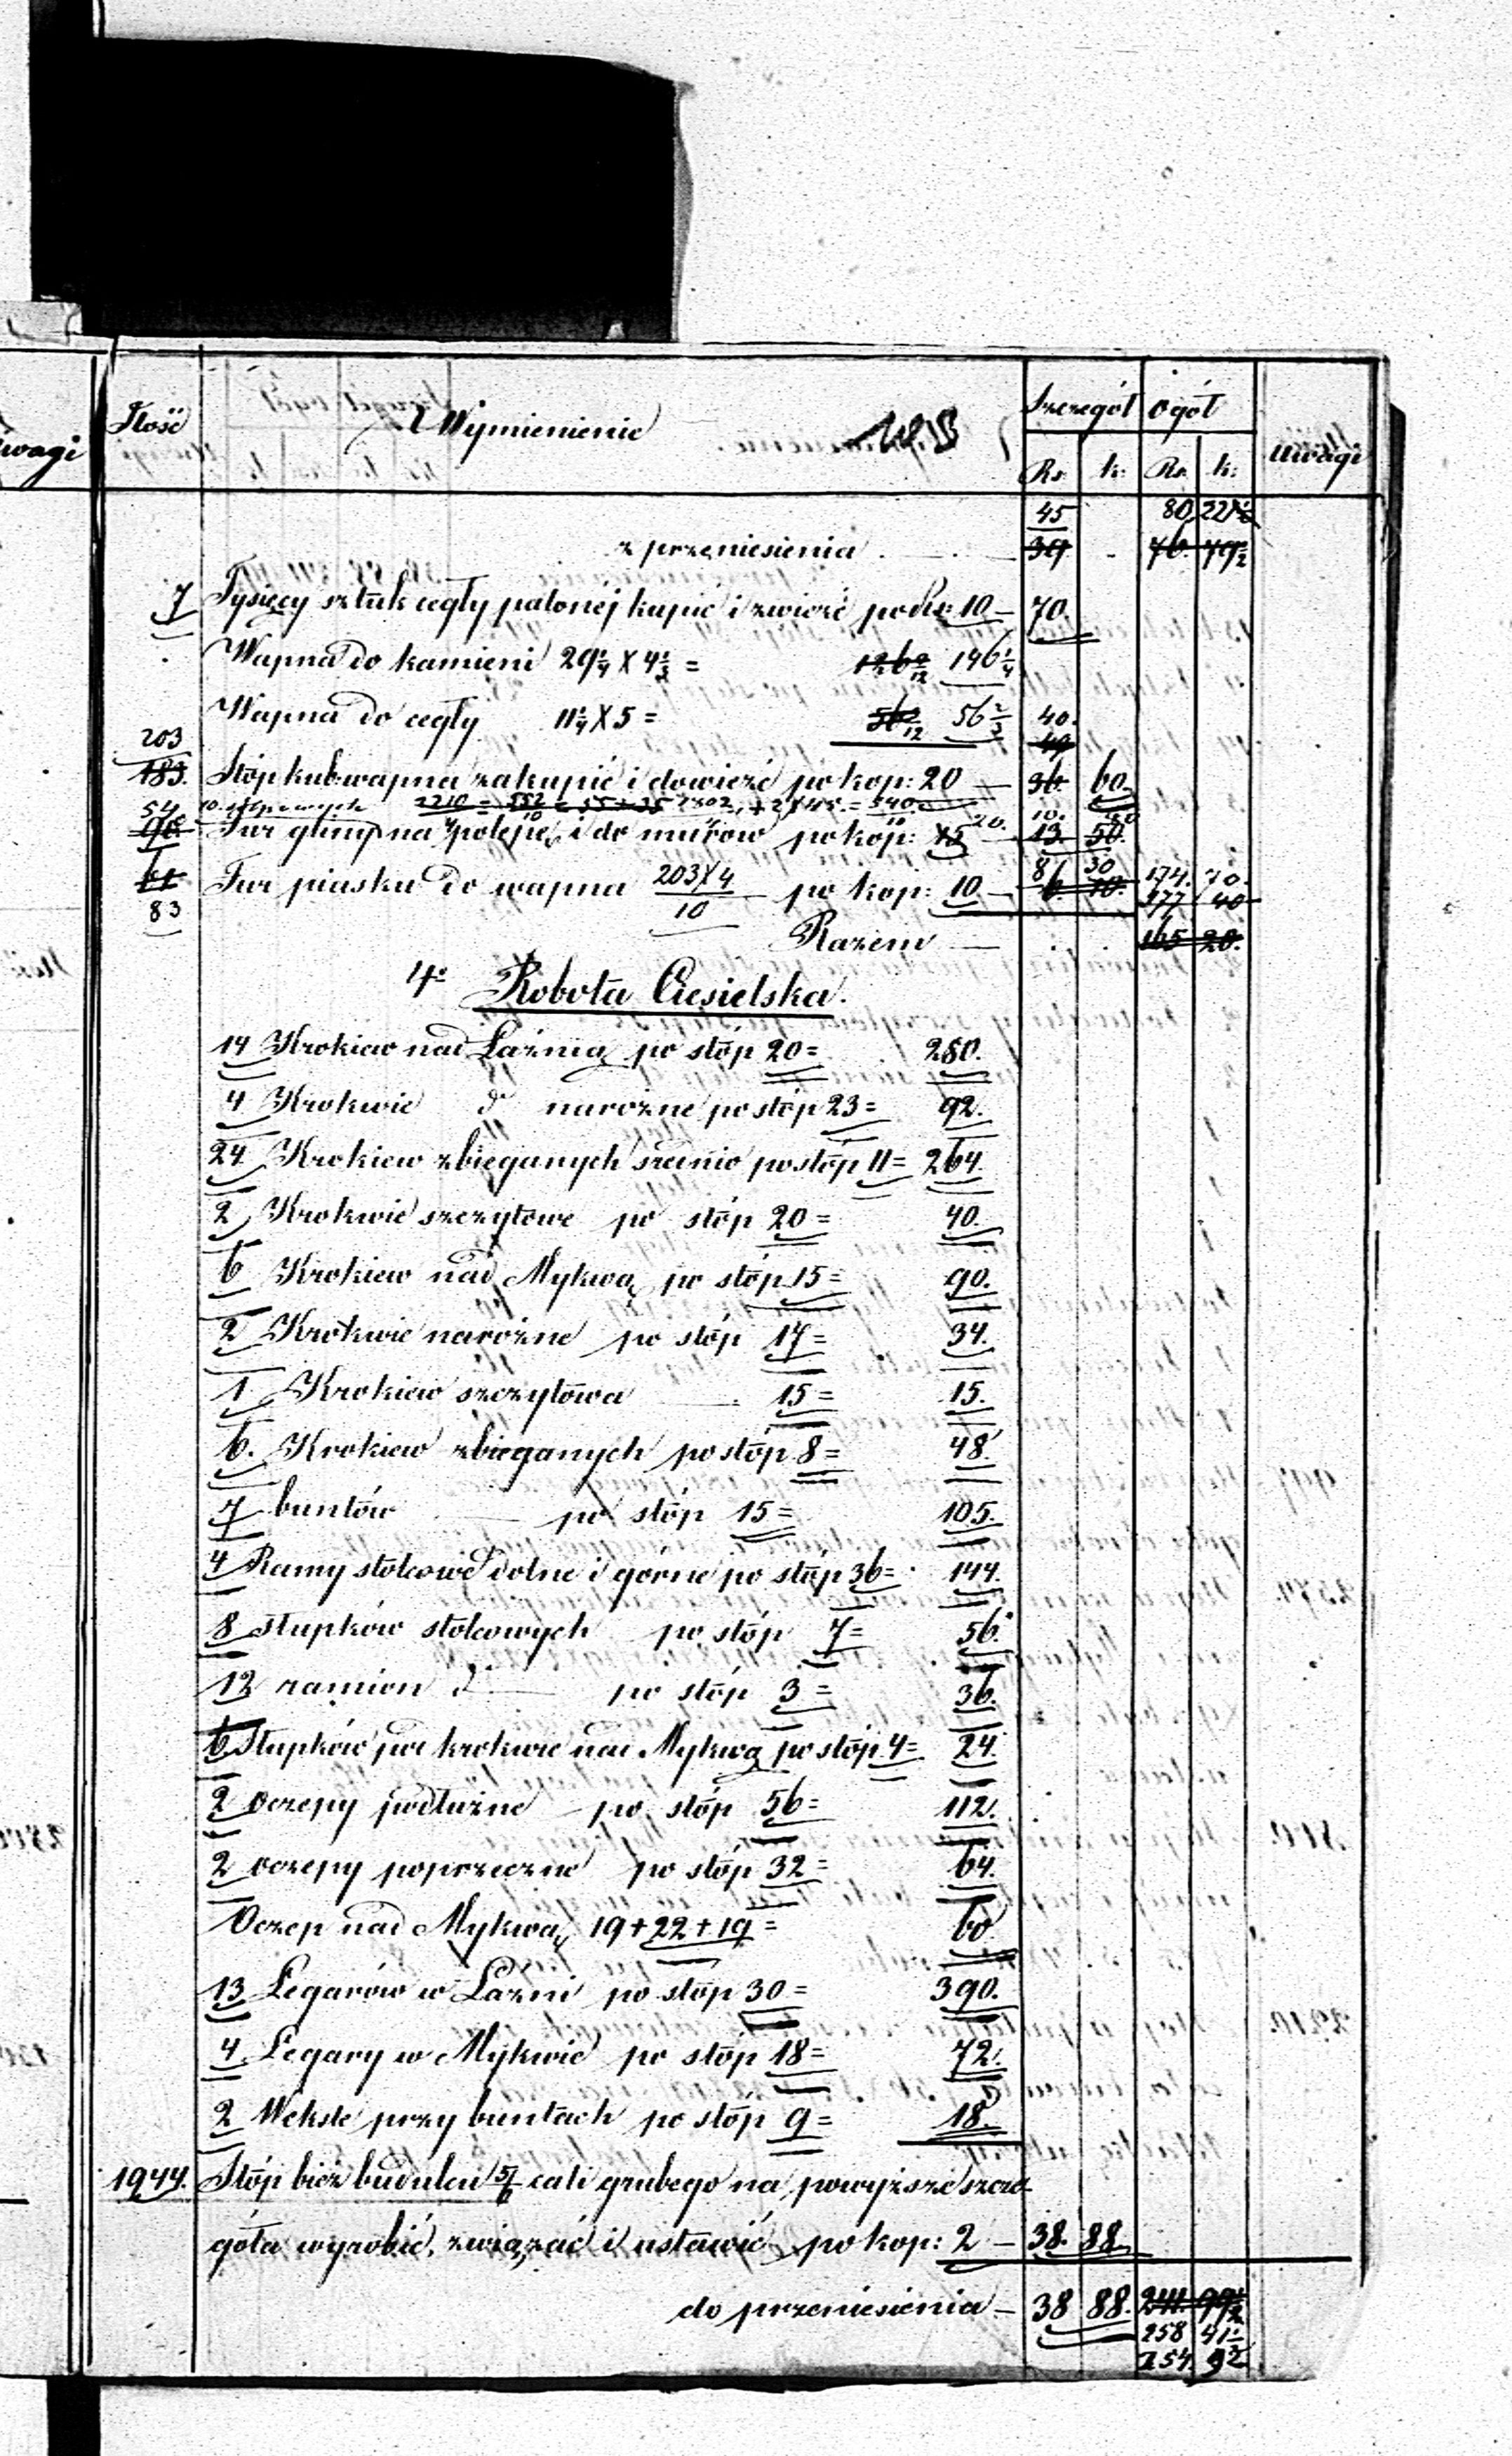 Ilość Wymienienie Szczegół Ogół Uwagi
uwagi
Rs. k: Rs. k:
45 80 22½
z przeniesienia 39 76. 79½
7 Tysięcy sztuk cegły palonéj kupić i zwieźć po Rs: 10 – 70.
Wapna do kamieni 29¼ X 4⅓ = 146¼
Wapna do cegły 11¼ X 5 = 56⅔ 40.
203 49
183. Stóp kub: wapna zakupić i dowieźć po kop: 20 – 36. 60.
54 10.
90. Fur gliny na polepę i do murów po kop: 15 20. 13. 50.
61 Fur piasku do wapna 203X4 po kop: 10 – 8 30 174. 70.
83 10 6. 10. 177 40
Razem – 165 20.
4o Robota Ciesielska.
14 Krokiew nad Łaźnią po stóp 20 = 280.
4 Krokwie do narożne po stóp 23 = 92.
24 Krokiew zbieganych średnio po stóp 11 = 264.
2 Krokwie szczytowe po stóp 20 = 40.
6 Krokiew nad Mykwą po stóp 15 = 90.
2 Krokwie narożne po stóp 17 = 34.
1 Krokiew szczytowa 15 = 15.
6. Krokiew zbieganych po stóp 8 = 48.
7 buntów po stóp 15 = 105.
4 Ramy stolcowe dolne i górne po stóp 36 = 144.
8 słupków stolcowych po stóp 7 = 56.
12 ramion do po stóp 3 = 36.
6 Słupków pod krokwie nad Mykwą po stóp 4 = 24.
2 oczepy podłużne po stóp 56 = 112.
2 oczepy poprzeczne po stóp 32 = 64.
Oczep nad Mykwą 19 + 22 + 19 = 60
13 Legarów w Łaźni po stóp 30 = 390.
4. Legary w Mykwie po stóp 18 = 72.
2 Weksle przy buntach po stóp 9 = 18.
1944. Stóp bież budulcu 5/6 cali grubego na powyższe szcze-
góła wyrobić, związać i ustawić po kop: 2 – 38. 88.
do przeniesienia – 38 88. 241. 99½
258 41½
254. 92